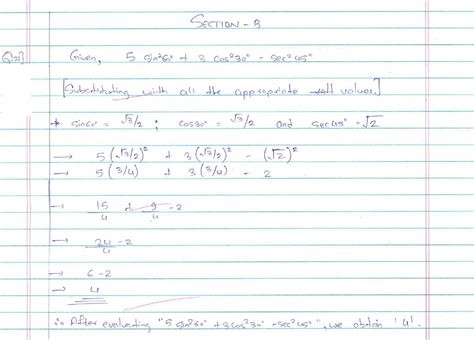 SECTION - B
Given, 5 sin²60° + 3 cos²30° - sec²45°
[Substituting with all the appropriate values.]
* sin60° = √3/2 ; cos30° = √3/2 and sec45° = √2
→ 5 (√3/2)² + 3 (√3/2)² - (√2)²
→ 5 (3/4) + 3 (3/4) - 2
→ 15/4 + 9/4 - 2
→ 24/4 - 2
→ 6 - 2
→ 4
∴ After evaluating "5 sin²60° + 3 cos²30° - sec²45°", we obtain '4'.